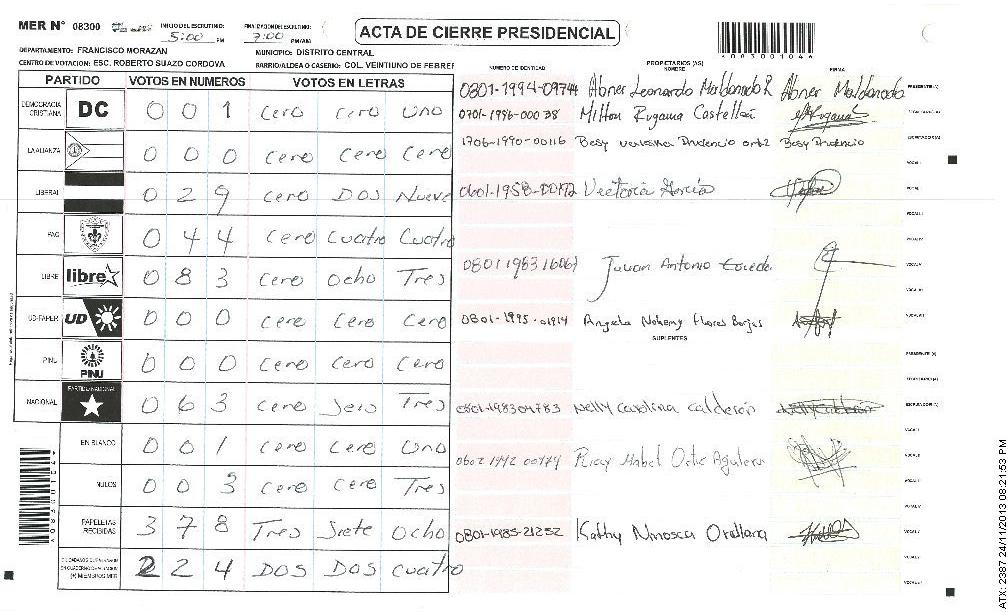 MER N° 08300
INICIO DEL ESCRUTINIO: 5:00 PM
FINALIZACION DEL ESCRUTINIO: 7:00 PM/AM
ACTA DE CIERRE PRESIDENCIAL
A08300104
DEPARTAMENTO: FRANCISCO MORAZAN
MUNICIPIO: DISTRITO CENTRAL
CENTRO DE VOTACION: ESC. ROBERTO SUAZO CORDOVA
BARRIO/ALDEA O CASERIO: COL. VEINTIUNO DE FEBRER
PARTIDO VOTOS EN NUMEROS VOTOS EN LETRAS
NUMERO DE IDENTIDAD
PROPIETARIOS (AS)
NOMBRE
FIRMA
DEMOCRACIA CRISTIANA DC 0 0 1 Cero Cero Uno
LA ALIANZA 0 0 0 Cero Cero Cero
LIBERAL 0 2 9 Cero DOS Nueve
PAC 0 4 4 Cero Cuatro Cuatro
LIBRE libre 0 8 3 Cero Ocho Tres
UD-FAPER UD 0 0 0 Cero Cero Cero
PINU PINU 0 0 0 Cero Cero Cero
NACIONAL PARTIDO NACIONAL 0 6 3 Cero Seis Tres
EN BLANCO 0 0 1 Cero Cero Uno
NULOS 0 0 3 Cero Cero Tres
PAPELETAS RECIBIDAS 3 7 8 Tres Siete Ocho
(+) MIEMBROS MER 2 2 4 DOS DOS Cuatro
0801-1994-09744 Abner Leonardo Maldonado R Abner Maldonado PRESIDENTE(A)
0701-1996-00038 Milton Eugama Castellón SECRETARIO(A)
1706-1990-00116 Besy Prudencio ortiz Besy Prudencio ESCRUTADOR(A)
VOCAL I
0601-1958-00172 Victoria García VOCAL II
VOCAL III
VOCAL IV
Juan Antonio VOCAL V
VOCAL VI
0801-1995-01914 Angela Nohemy Flores Borjas VOCAL VII
SUPLENTES
PRESIDENTE (A)
SECRETARIO(A)
0801-198304783 Nelly Carolina Calderón ESCRUTADOR(A)
VOCAL I
Mabel Ortiz Aguilera VOCAL II
VOCAL III
VOCAL IV
0801-1985-21252 Kathy Orellana VOCAL V
VOCAL VI
VOCAL VII
ATX: 2387 24/11/2013 08:21:53 PM